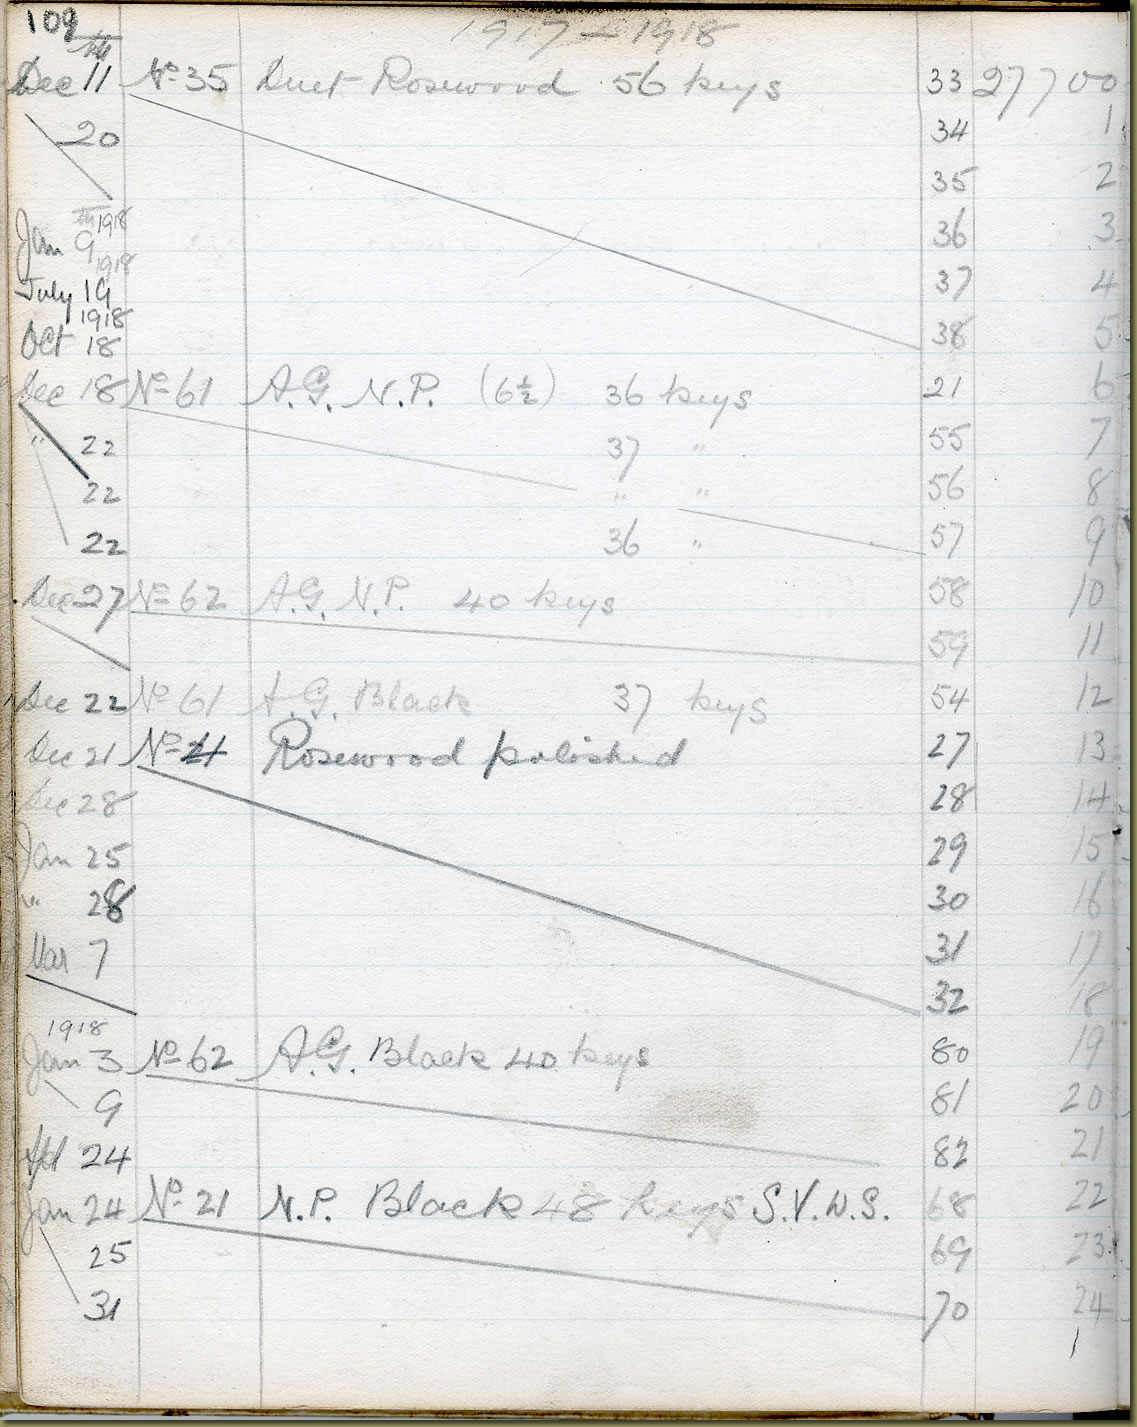 109 1917 – 1918
Dec 11 No 35 Duet Rosewood 56 keys 33 27700
20 34 1
35 2
Jan 9 1918 36 3
July 19 1918 37 4
Oct 18 1918 38 5
Dec 18 No 61 A.G. N.P. (6½) 36 keys 21 6
" 22 37 " 55 7
22 " " 56 8
22 36 " 57 9
Dec 27 No 62 A.G. N.P. 40 keys 58 10
59 11
Dec 22 No 61 A.G. Black 37 keys 54 12
Dec 21 No 21 Rosewood polished 27 13
Dec 28 28 14
Jan 25 29 15
" 28 30 16
Mar 7 31 17
32 18
1918
Jan 3 No 62 A.G. Black 40 keys 80 19
9 81 20
Apl 24 82 21
Jan 24 No 21 N.P. Black 48 keys S.V.W.S. 68 22
25 69 23
31 70 24